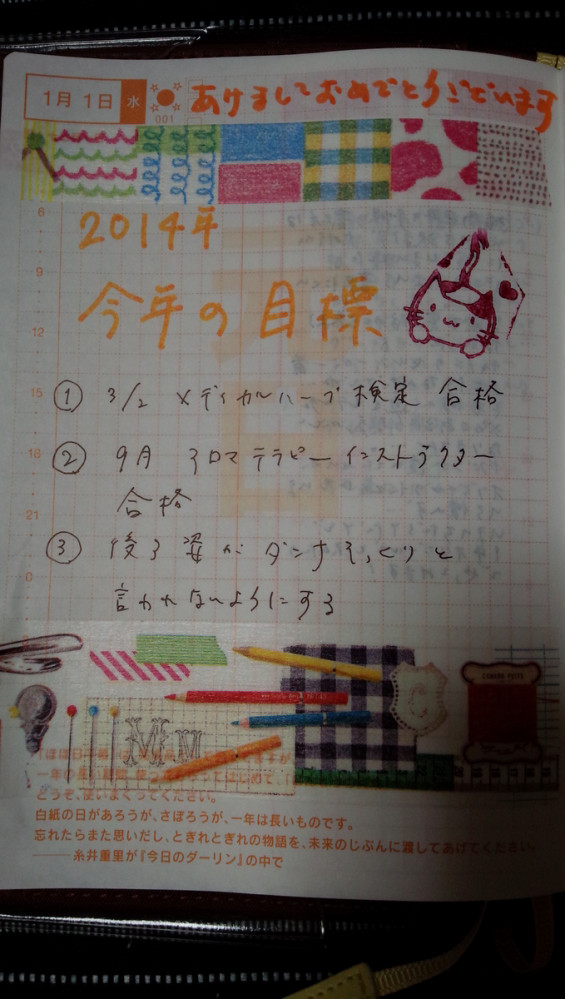 1月1日 水
001
あけましておめでとうございます
2014年
今年の目標
6
9
12
15
18
21
0
① 3/2 メディカルハーブ検定 合格
② 9月 アロマテラピーインストラクター
合格
③ 後ろ姿がダンナそっくりと
言われないようにする
どうぞ、使いまくってください。
白紙の日があろうが、さぼろうが、一年は長いものです。
忘れたらまた思いだし、とぎれとぎれの物語を、未来のじぶんに渡してあげてください。
——糸井重里が『今日のダーリン』の中で